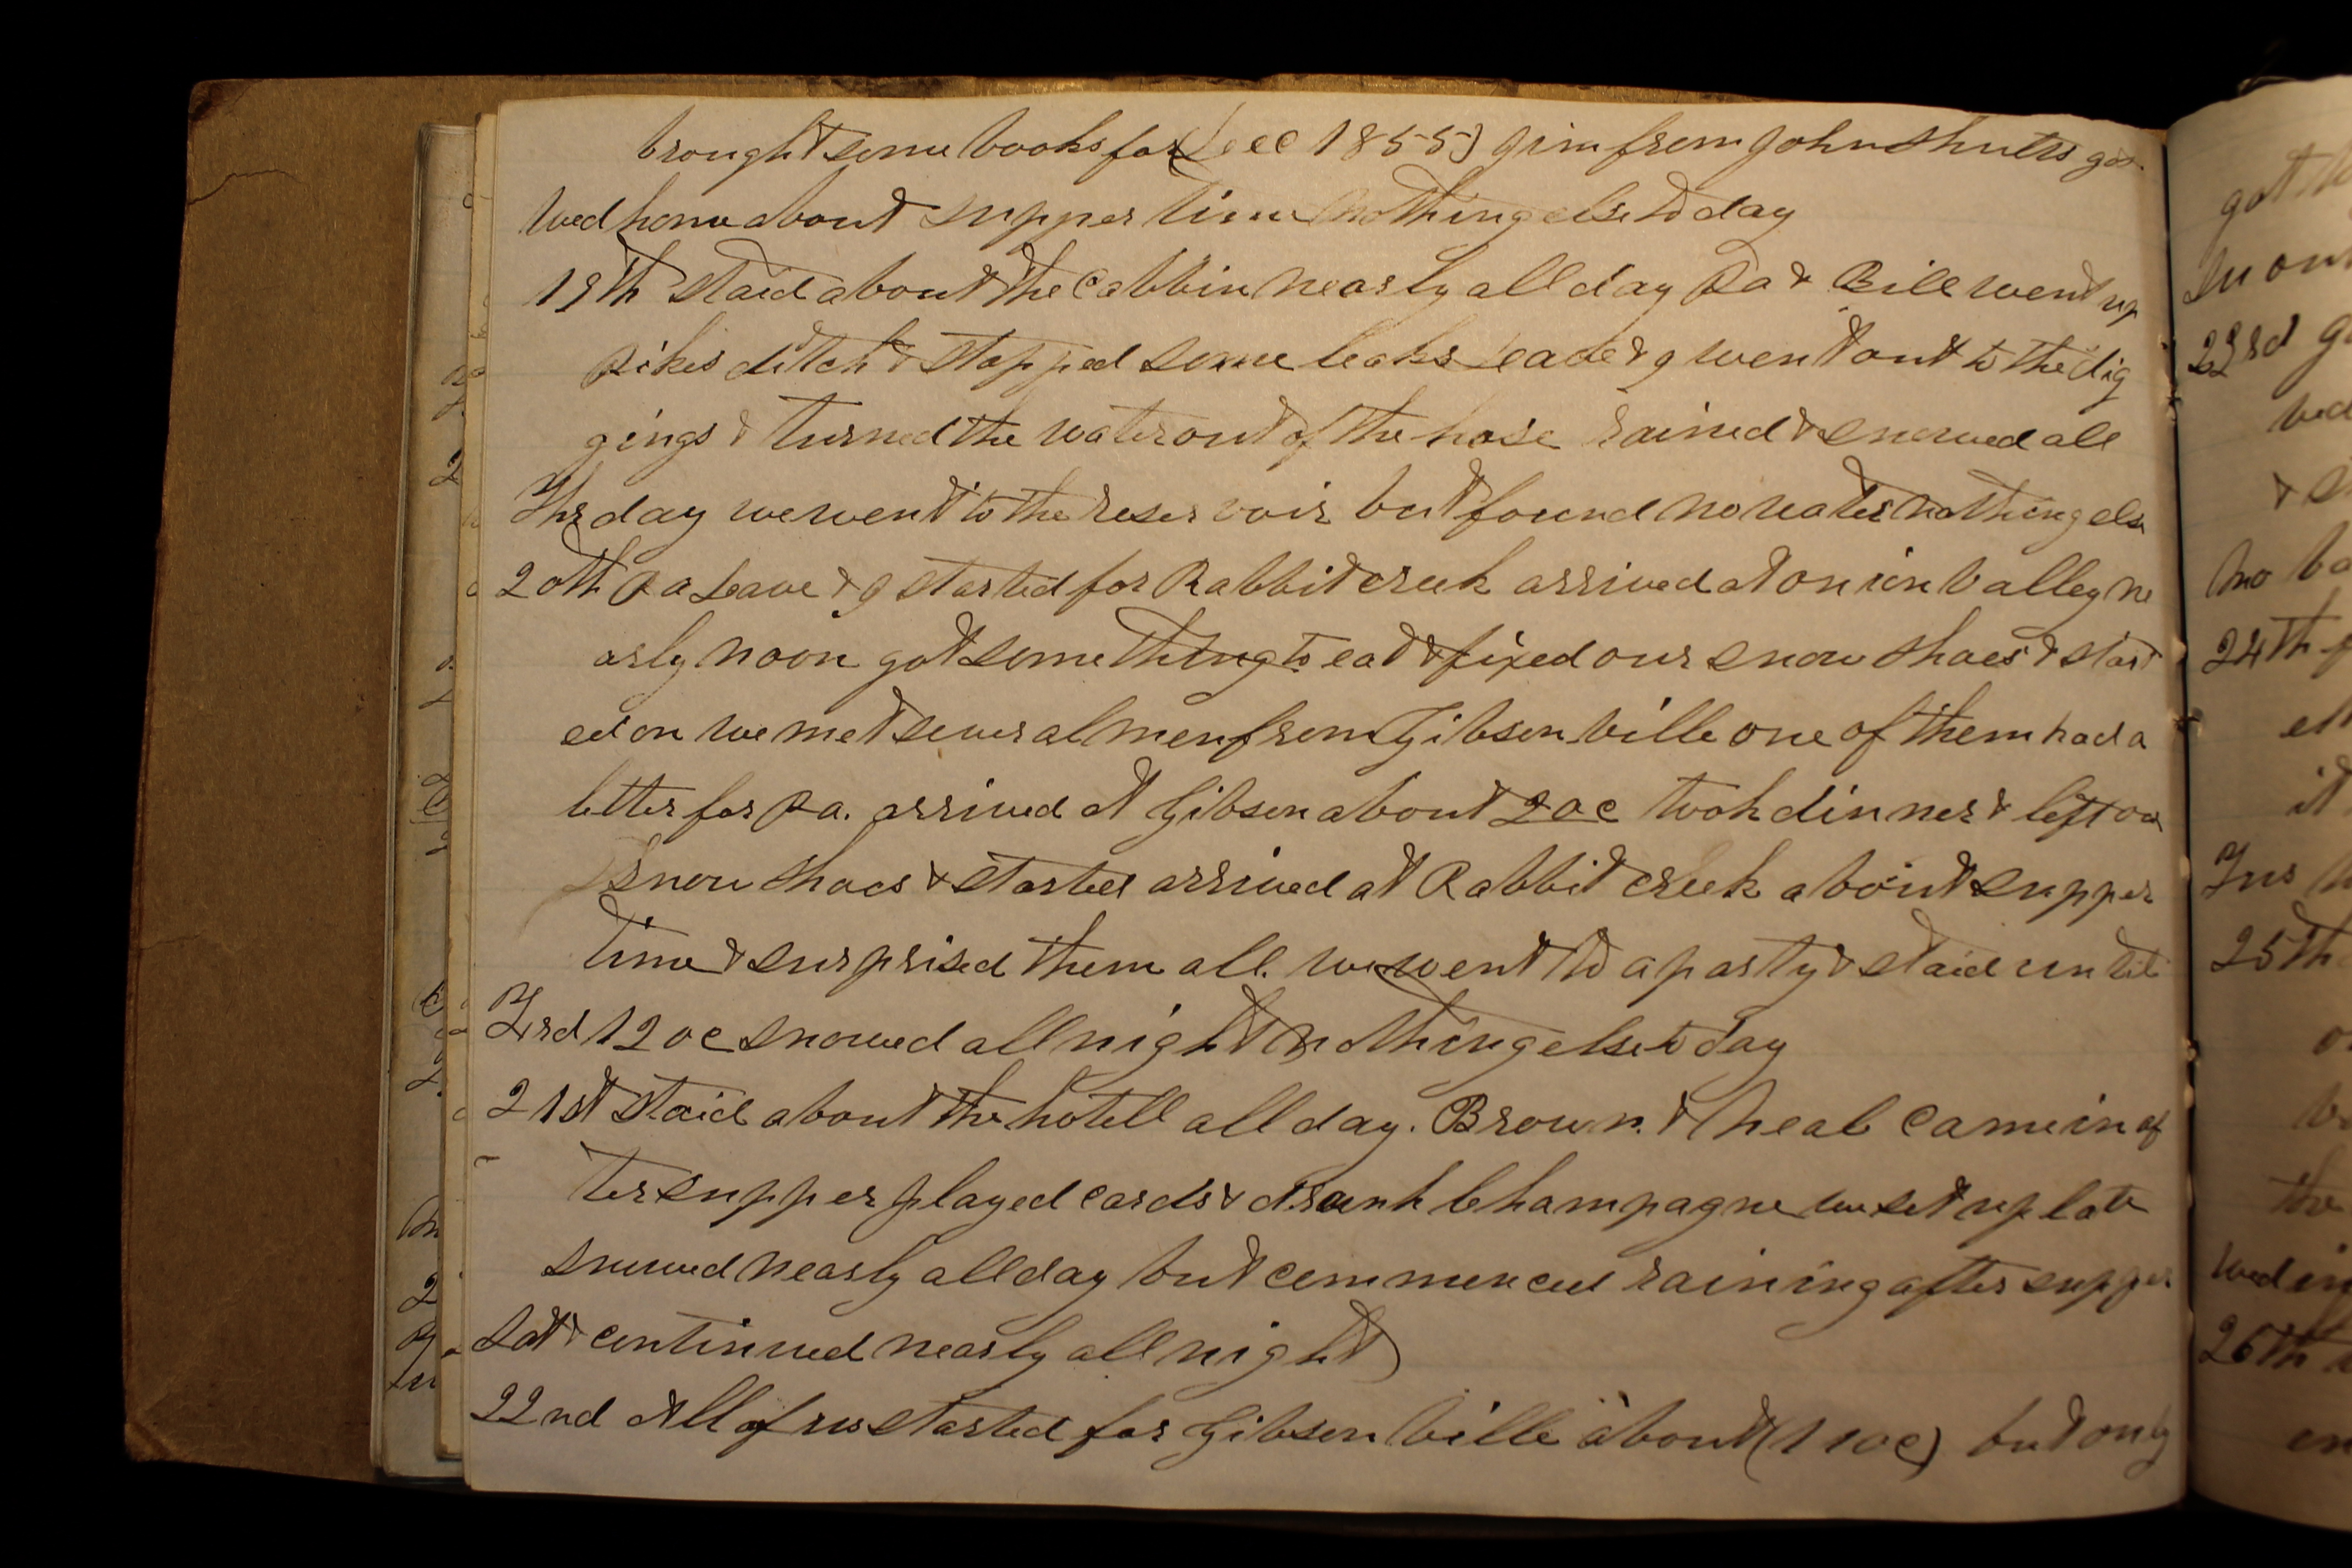 brought some books for (Dec 1855) Jim from John Shutts got
Wed home about supper time nothing else to day
19th staid about the Cabbin nearly all day Pa & Bill went up
Pikes ditch & stopped some leaks Leave & I went out to the dig
gings & turned the water out of the hose rained & snowed all
Thr day we went to the reservoir but found no water nothing else
20th Pa Leave & I started for Rabbit creek arrived at onion Valley ne
arly noon got something to eat & fixed our snow shoes & start
ed on we met several men from Gibsonville one of them had a
letter for Pa. arrived at Gibson about 2 oc took dinner & left our
snow shoes & started arrived at Rabbit creek about supper
time & surprised them all. we went to a party & staid until
Frd 12 oc snowed all night nothing else to day
21st staid about the hotell all day. Brown. & Neal came in af
ter supper played cards & drank Champagne we set up late
snowed nearly all day but commenced raining after supper
Sat & continued nearly all night
22nd All of us started for Gibsonville about (1 oc) but only
got
in
23rd
wed
&
no
24th
it
25th
the
Wed
26th